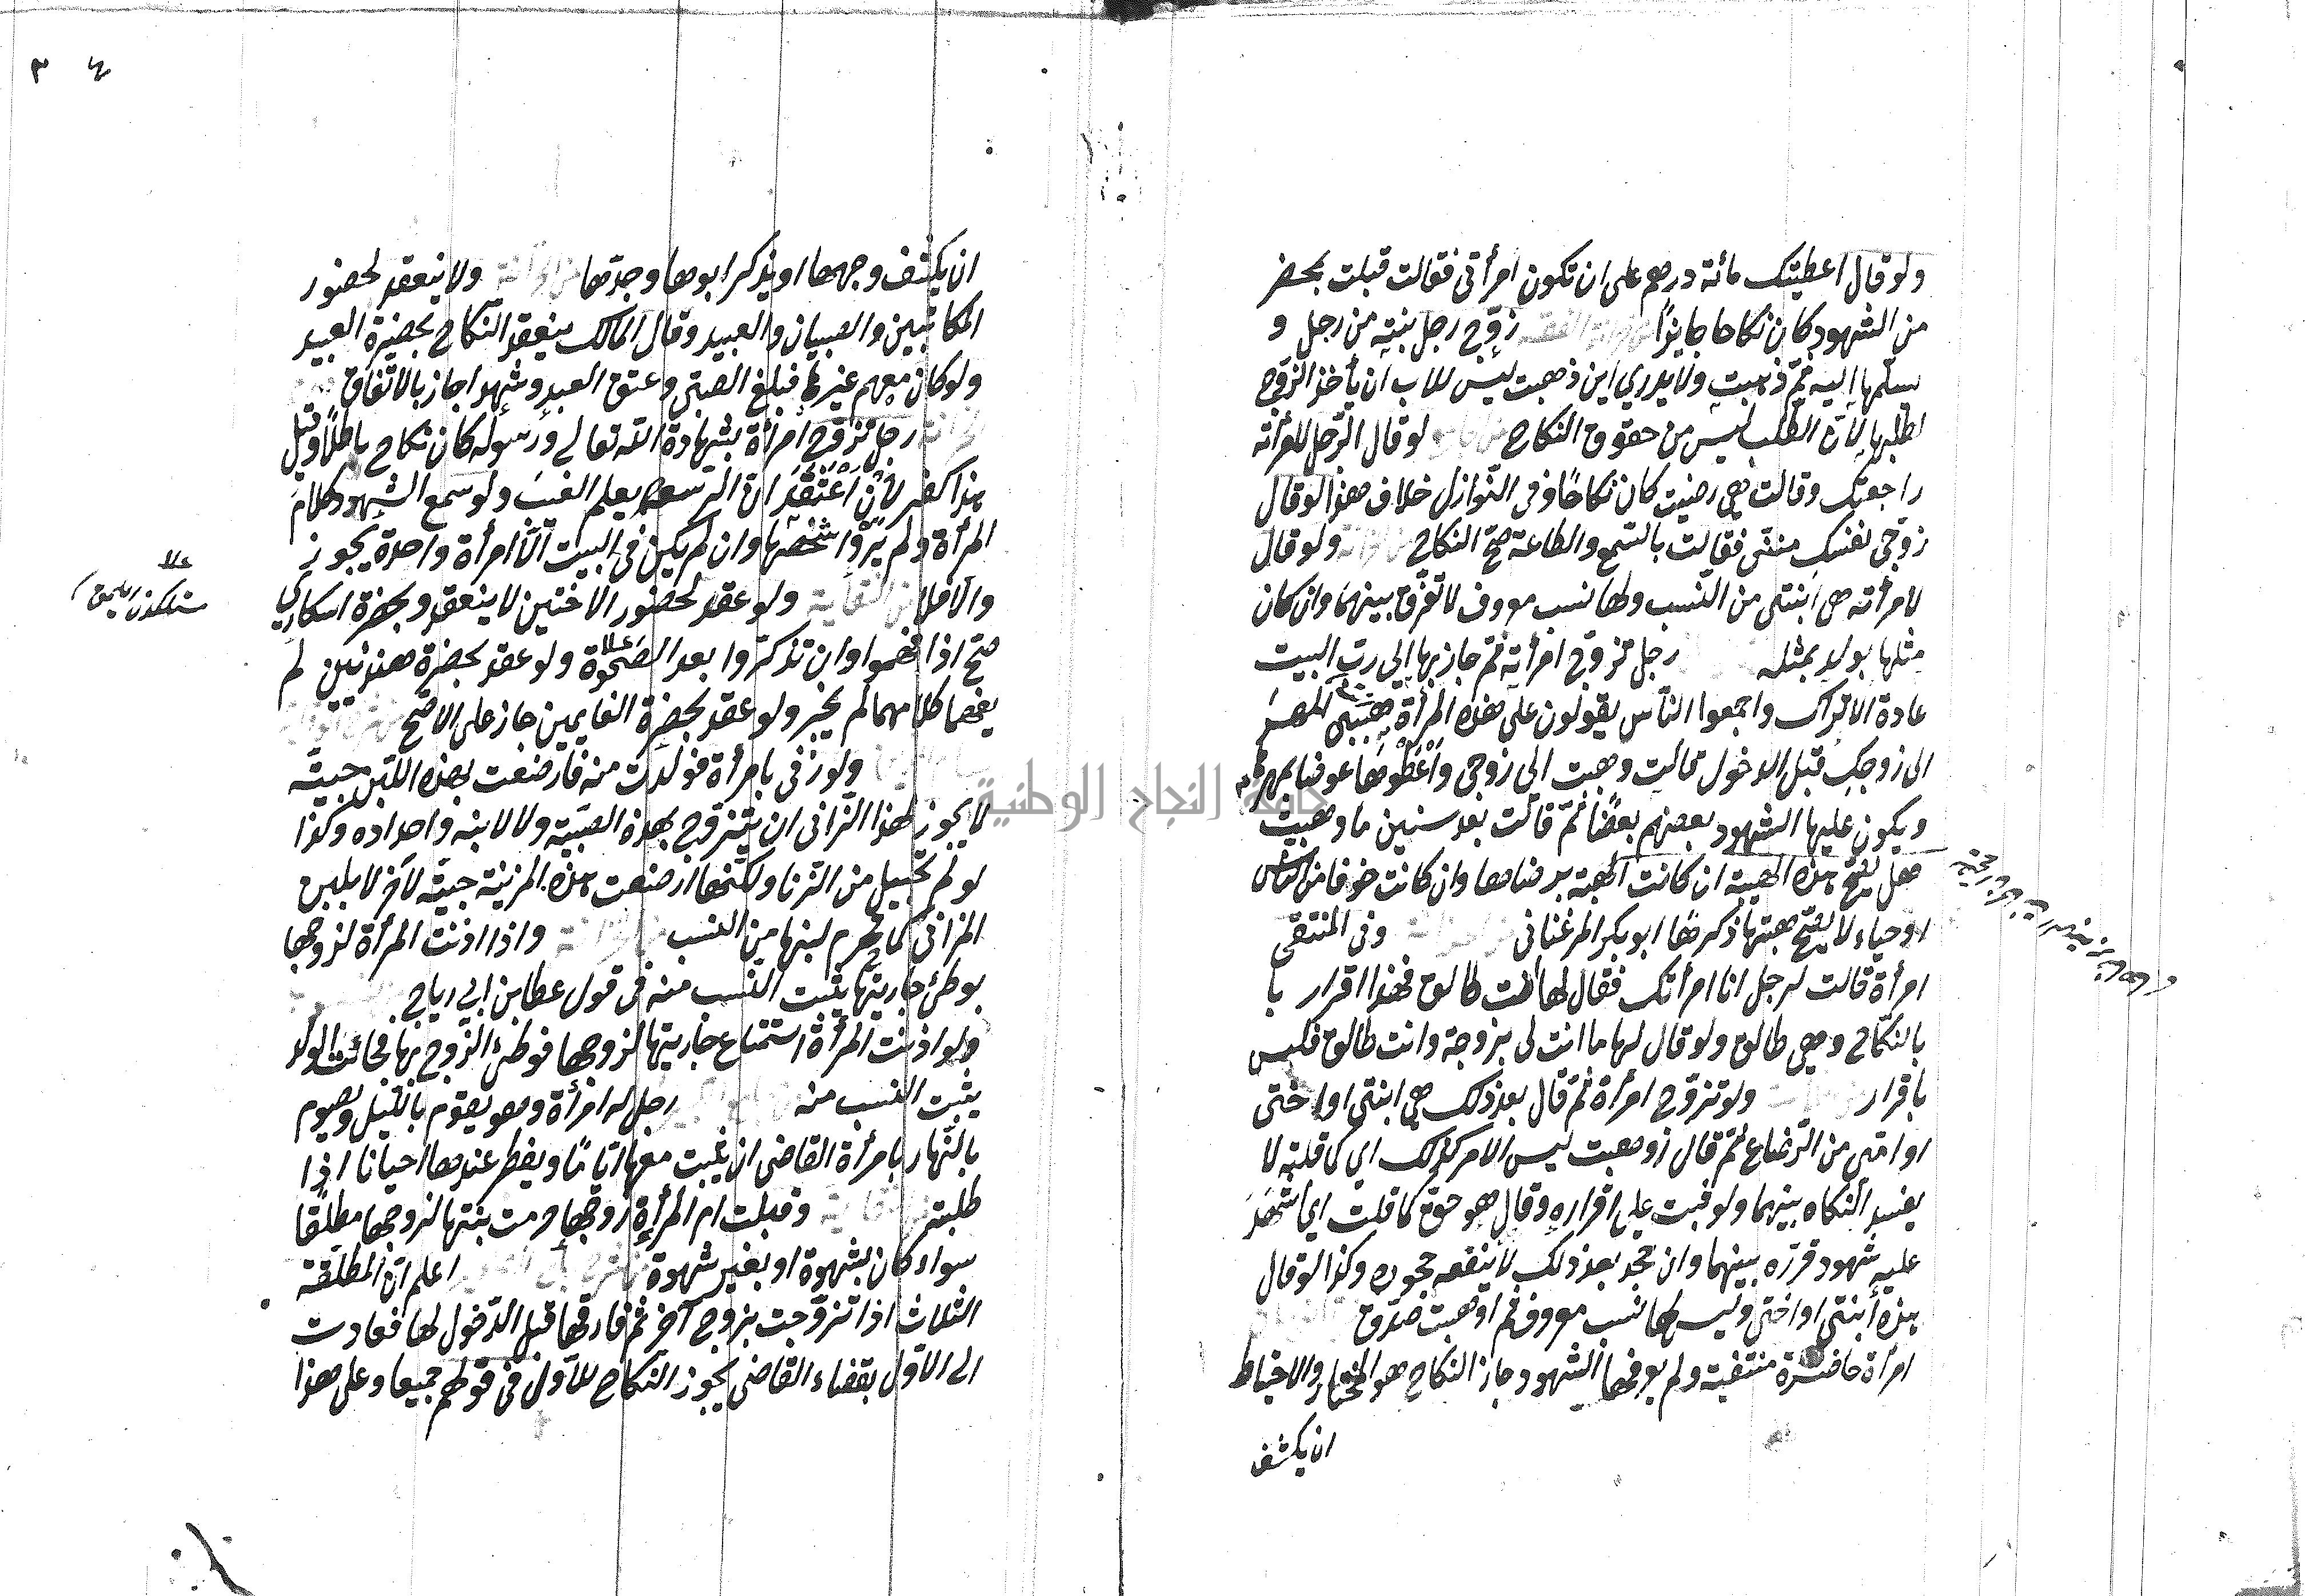 ولو قال اعطيتك مائة درهم على ان تكون امرأتى فقالت قبلت بحضر
من الشهود كان نكاحا جايزا زوج رجل بنته من رجل و
سلمها اليه ثم ذهبت ولا يدري اين ذهبت ليس للاب ان يأخذ الزوج
لطلبها لان الطلب ليس من حقوق النكاح لو قال الرجل للمرأته
راجعتك وقالت هي رضيت كان نكاحا وفى النوازل خلاف هذا لو قال
زوجى نفسك منى فقالت بالسمع والطاعة صح النكاح ولو قال
لامرأته هى ابنتى من النسب ولها نسب معروف لا تفرق بينهما وان كان
مثلها يولد بمثله رجل تزوج امرأته ثم جاز بها الى رب البيت
عادة الاتراك واجمعوا الناس يقولون على هذه المرأة هبى المهر
الى زوجك قبل الدخول قالت وهبت الى زوجى واعطوها عوضا
ويكون عليها الشهود بعضهم بعضا ثم قالت بعد سنين ما وهبت
هل يصح هذه الهبة ان كانت الهبة برضاها وان كانت خوفا من الناس
او حياء لا يصح هبتها ذكر هذا ابو بكر المرغنانى وفى المنتقى
امرأة قالت لرجل انا امرأتك فقال لها انت طالق فهذا اقرار با
بالنكاح وهي طالق ولو قال لها ما انت لى بزوجة وانت طالق فليس
باقرار ولو تزوج امرأة ثم قال بعد ذلك هى ابنتى او اختى
او امى من الرضاع ثم قال زوهمت ليس الامر كذلك اي كما قلته لا
يفسد النكاه بينهما ولو ثبت على اقراره وقال هو حق كما قلت اي اشهد
عليه شهود فرق بينهما وان جحد بعد ذلك لا ينفعه جحوده وكذا لو قال
هذه أبنتى او اختى وليس لها نسب معروف ثم اوهمت صدق
امرأة حاضرة منتقبة ولم يعرفها الشهود جاز النكاح هو المختار والاحتياط
ان يكشف
٣٤
ان يكشف وجهها او يذكر ابوها وجدها ولا ينعقد لحضور
المكاتبين والصبيان والعبيد وقال المالك ينعقد النكاح بحضرة العبيد
ولو كان معهم غيرها فبلغ الصبى وعتق العبد وشهدا جاز بالاتفاق
رجل تزوج امرأة بشهادة الله تعالى ورسوله كان نكاح باطلا وقيل
هذا كفر لانه اعتقد ان الرسول يعلم الغيب ولو سمع الشهود كلام
المرأة ولم يروا شخصها وان لم يكن فى البيت الا امرأة واحدة يجوز
والا فلا ولو عقد لحضور الاخنين لا ينعقد وبحضرة اسكارى
صح اذا فهموا وان تذكروا بعد الصحوة ولو عقد بحضرة هندنين لم
يفهما كلامهما لم يجز ولو عقد بحضرة النايمين جاز على الاصح
ولو زنى بامرأة فولدت منه فارضعت بهذه اللبن صبية
لا يجوز لهذا الزانى ان يتزوج بهذه الصبية ولا لابنه واجداده وكذا
لو لم تحبل من الزنا ولكنها ارضعت هذه المزنية صبية لآخر لا بلبن
الزانى كما تحرم لبنها من النسب واذا اذنت المرأة لزوجها
بوطئ جاريتها يثبت النسب منه فى قول عطا بن ابى رياح
ولو اذنت المرأة استمتاع جاريتها لزوجها فوطئ الزوج بها فجائت الولد
يثبت النسب منه رجل له امرأة وهو يقوم بالليل ويصوم
بالنهار يامرأة القاضى ان يبيت معها اياما ويفطر عندها احيانا اذا
طلبته وقبلت ام المرأة زوجها حرمت بنتها لزوجها مطلقا
سواء كان بشهوة او بغير شهوة اعلم ان المطلقة
الثلاث اذا تزوجت بزوج آخر ثم فارقها قبل الدخول لها فعادت
الى الاول بقضاء القاضى يجوز النكاح للاول فى قولهم جميعا وعلى هذا
جامعة النجاح الوطنية